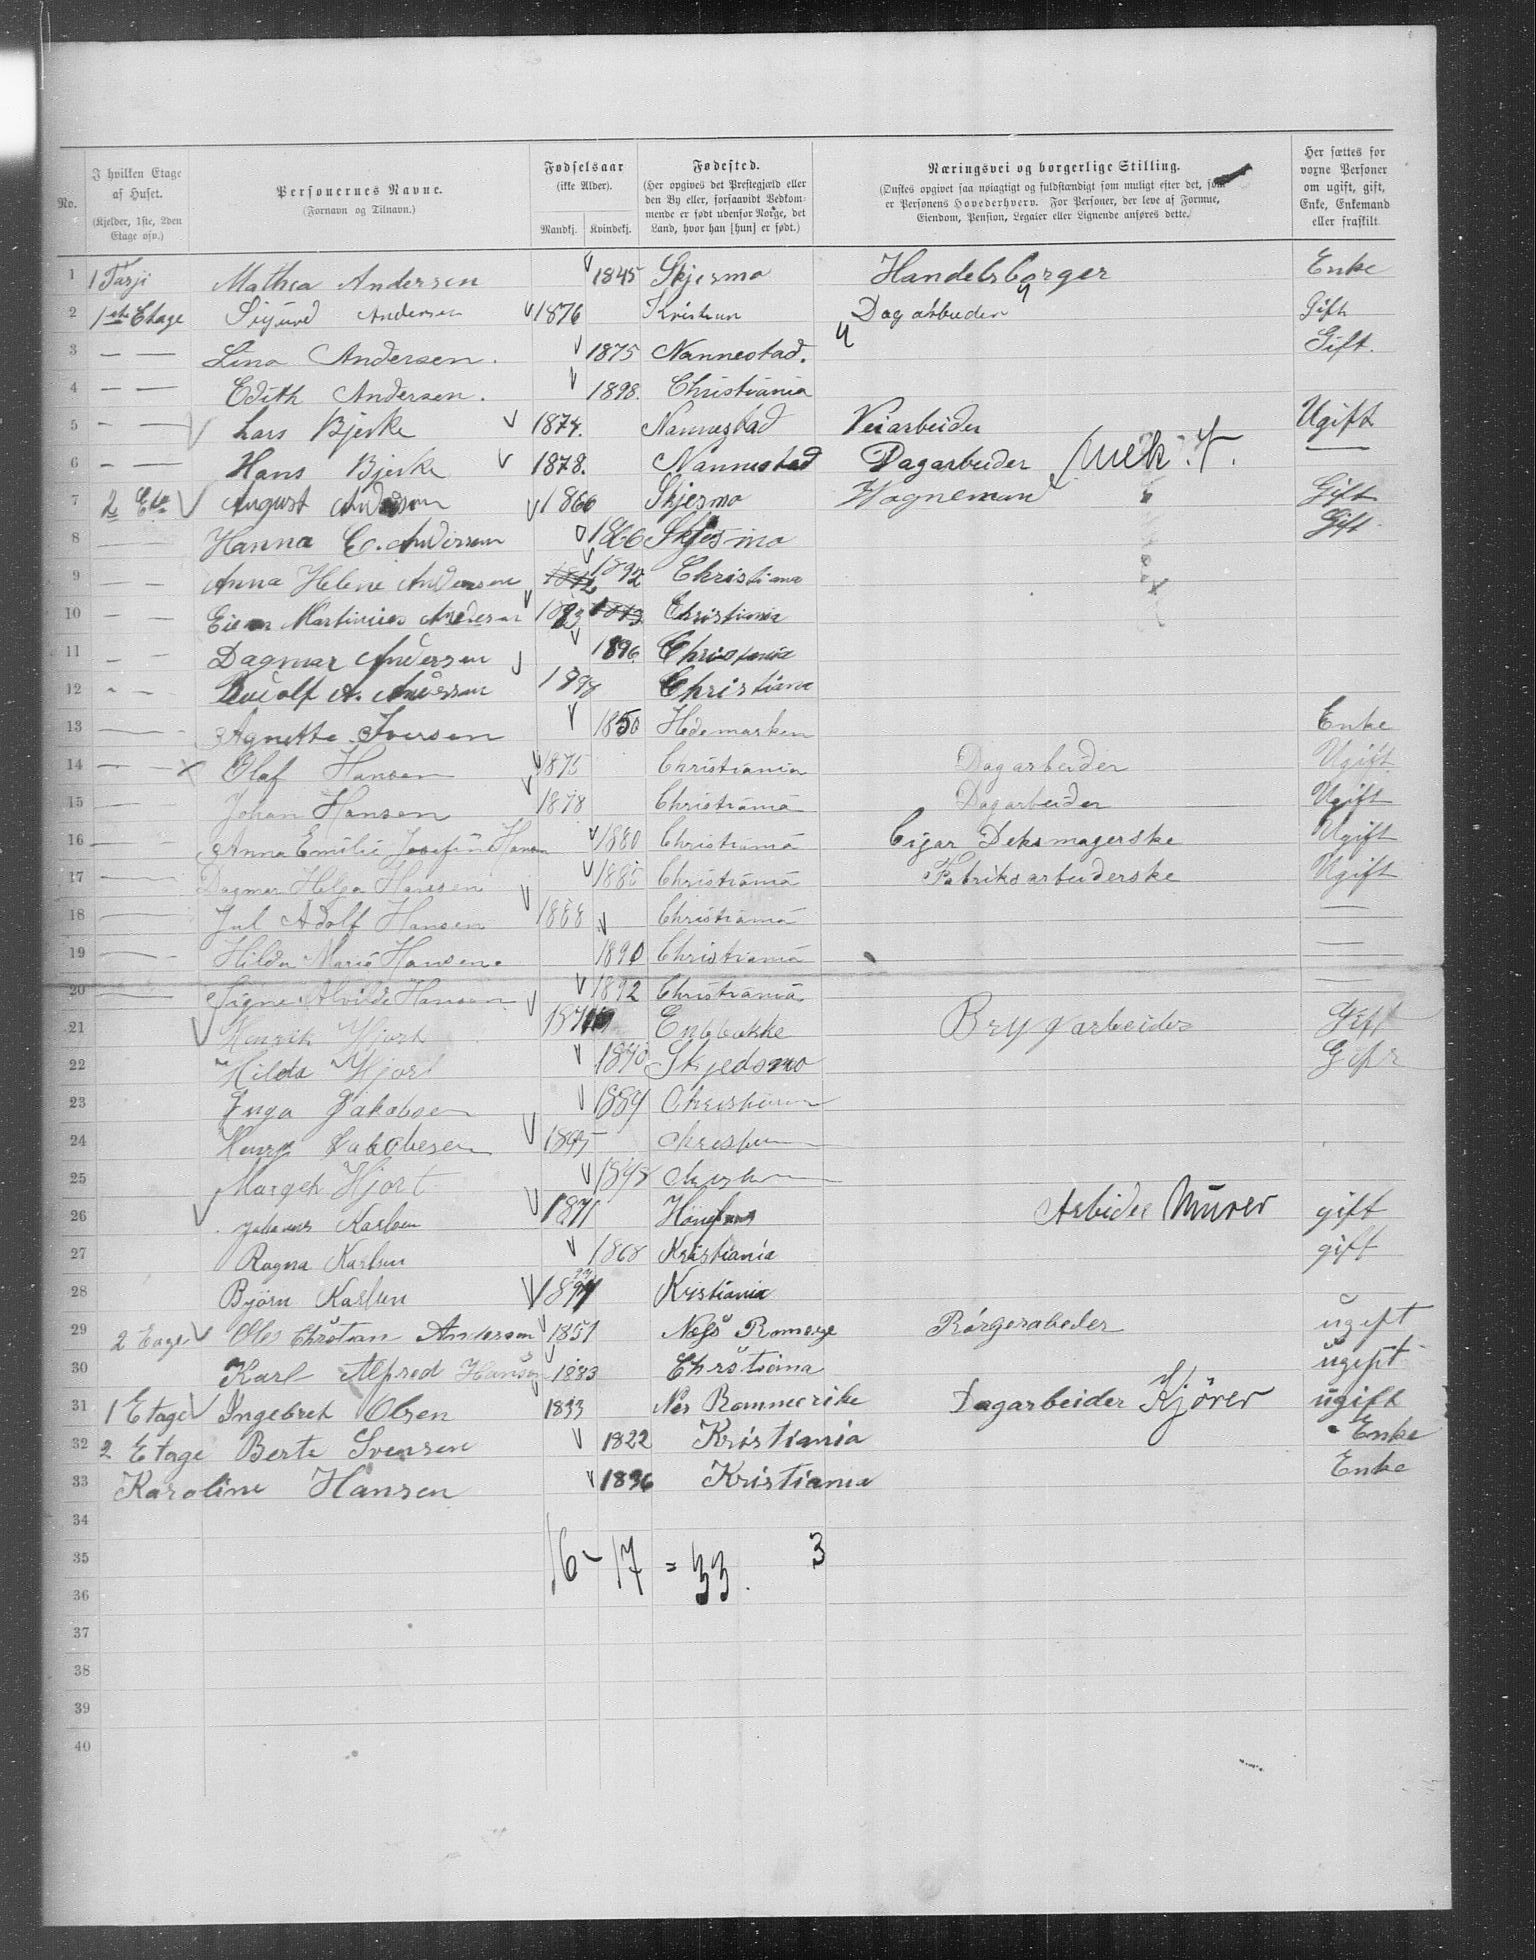 No.
I hvilken Etage af Huset. (Kjelder, 1ste, 2den Etage osv.)
Personernes Navne. (Fornavn og Tilnavn.)
Fødselsaar (ikke Alder). Mandkj. Kvindekj.
Fødested. (Her opgives det Prestegjæld eller den By eller, forsaavidt Vedkommende er født udenfor Norge, det Land, hvor han [hun] er født.)
Næringsvei og borgerlige Stilling. (Ønskes opgivet saa nøiagtigt og fuldstændigt som muligt efter det, som er Personens Hovederhverv. For Personer, der leve af Formue, Eiendom, Pension, Legater eller Lignende anføres dette.)
Her sættes for voxne Personer om ugift, gift, Enke, Enkemand eller fraskilt.
1 Mathea Andersen 1845 Skjesmo Handelsborger Enke
2 1ste Etage Sigurd Andersen 1876 Kristian Dagarbeider Gift
3 — — Lina Andersen. 1875 Nannestad. Gift.
4 — — Edith Andersen. 1898. Christiania
5 — — Lars Bjerke 1874. Nannestad Veiarbeider Ugift
6 — — Hans Bjerke 1878. Nannestad Dagarbeider mek. —
7 2 Etg August Andersen 1860 Skjesmo Vognemand Gift
8 — Hanna C. Andersen 1866 Skjesmo Gift
9 — — Anna Helene Andersen 1892 Christiana
10 — — Einar Martinius Andersen 1893 Christiania
11 — — Dagmar Andersen 1896 Christiania
12 — — Rudolf A. Andersen 1898 Christiana
13 — — Agnette Iversen 1850 Hedemarken Enke
14 — — Olaf Hansen 1875 Christiania Dagarbeider Ugift
15 — Johan Hansen 1878 Christiania Dagarbeider Ugift
16 — Anna Emilie Josefin Hansen 1880 Christiania Cigar Deksmagerske Ugift
17 — Dagmar Helga Hansen 1885 Christiania Fabriksarbeiderske Ugift
18 — Jul Adolf Hansen 1888 Christiania —
19 — Hilda Maria Hansen. 1890 Christiania —
20 — Signe Alvilde Hansen 1892 Christiania —
21 Henrik Hjort Enebakke Bryggarbeider Gift
22 Hilda Hjort 1870 Skjedsmo Gift
23 Inga Jakobsen 1889 Christiania
24 Henry Jakobsen 1895
25 Margeth Hjort 1898
26 Johannes Karlsen 1871 Arbider Murer gift
27 Ragna Karlsen 1868 Kristiania gift
28 Bjørn Karlsen Kristiania
29 2 Etage Ole Christian Andersen 1851 Næs Romerige Rørgerabeder ugift
30 Karl Alfred Hansen 1883 Christiana ugift
31 1 Etage Ingebret Olsen 1833 Nes Rommerike Dagarbeider Kjører ugift
32 2 Etage Berte Svensen 1822 Kristiania Enke
33 Karoline Hansen 1836 Kristiania Enke
34
35 16 - 17 = 33. 3
36
37
38
39
40